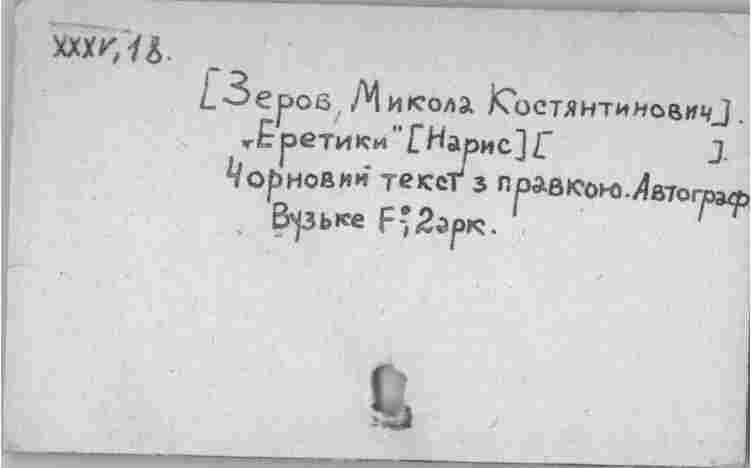 XXXV, 18.
[Зеров, Микола Костянтинович].
"Еретики" [Нарис] [ ].
Чорновий текст з правкою. Автограф
Вузьке F°; 2арк.